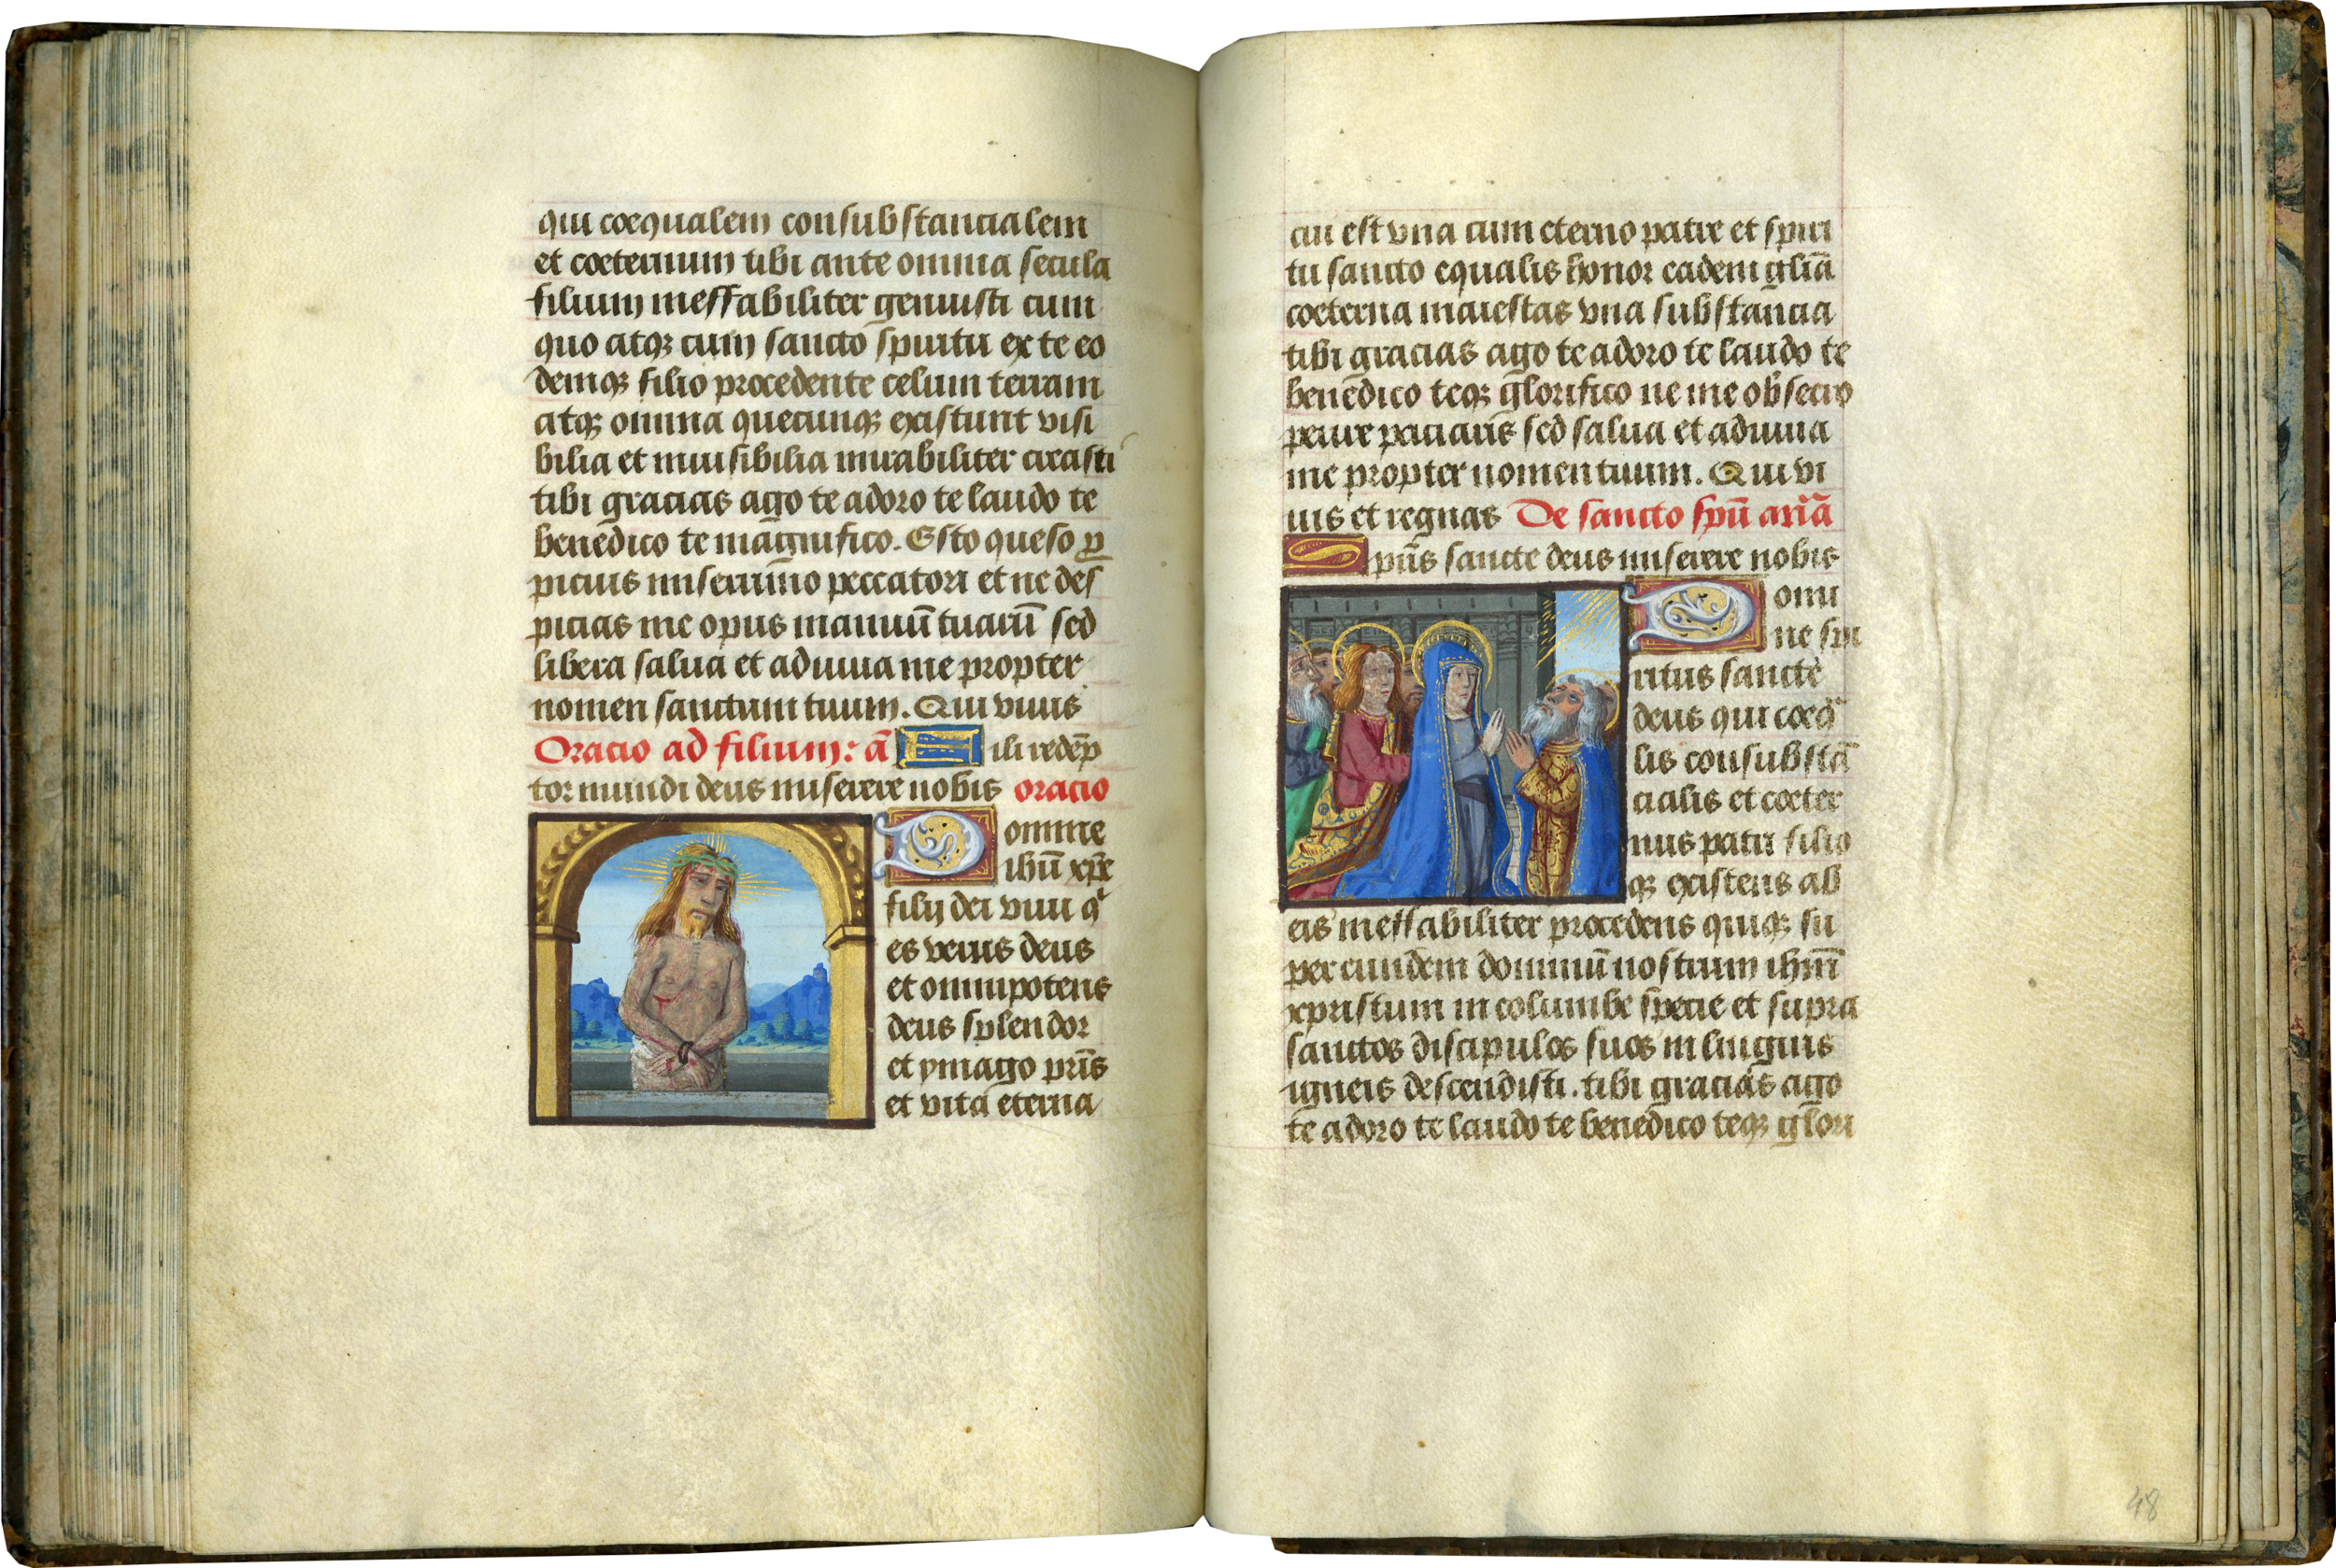 qui coequalem consubstancialem
et coeternum tibi ante omnia secula
filium ineffabiliter genuisti cum
quo atqꝫ cum sancto spiritu ex te eo
demqꝫ filio procedente celum terram
atqꝫ omnia quecunqꝫ existunt visi
bilia et inuisibilia mirabiliter creasti
tibi gracias ago te adoro te laudo te
benedico te magnifico. Esto queso ꝓ
picius miserrimo peccatori et ne des
picias me opus manuū tuarū sed
libera salua et adiuua me propter
nomen sanctum tuum. Qui viuis
Oracio ad filium: ā Fili redēp
tor mundi deus miserere nobis oracio
Domine
ihū xp̄e
filij dei viui qͥ
es verus deus
et omnipotens
deus splendor
et ymago pr̄is
et vita eterna
cui est vna cum eterno patre et spiri
tu sancto equalis honor eadem gl̄ia
coeterna maiestas vna substancia
tibi gracias ago te adoro te laudo te
benedico teqꝫ glorifico ne me obsecro
perire paciaris sed salua et adiuua
me propter nomen tuum. Qui vi
uis et regnas De sancto spū
Spūs sancte deus miserere nobis
Domi
ne spi
ritus sancte
deus qui coeqᵃ
lis consubstā
cialis et coeter
nus patri filio
qꝫ existens ab
eis ineffabiliter procedens quiqꝫ su
per eundem dominū nostrum ihm̄
xpristum in columbe specie et supra
sanctos discipulos suos in linguis
igneis descendisti. tibi gracias ago
te adoro te laudo te benedico teqꝫ glori
48